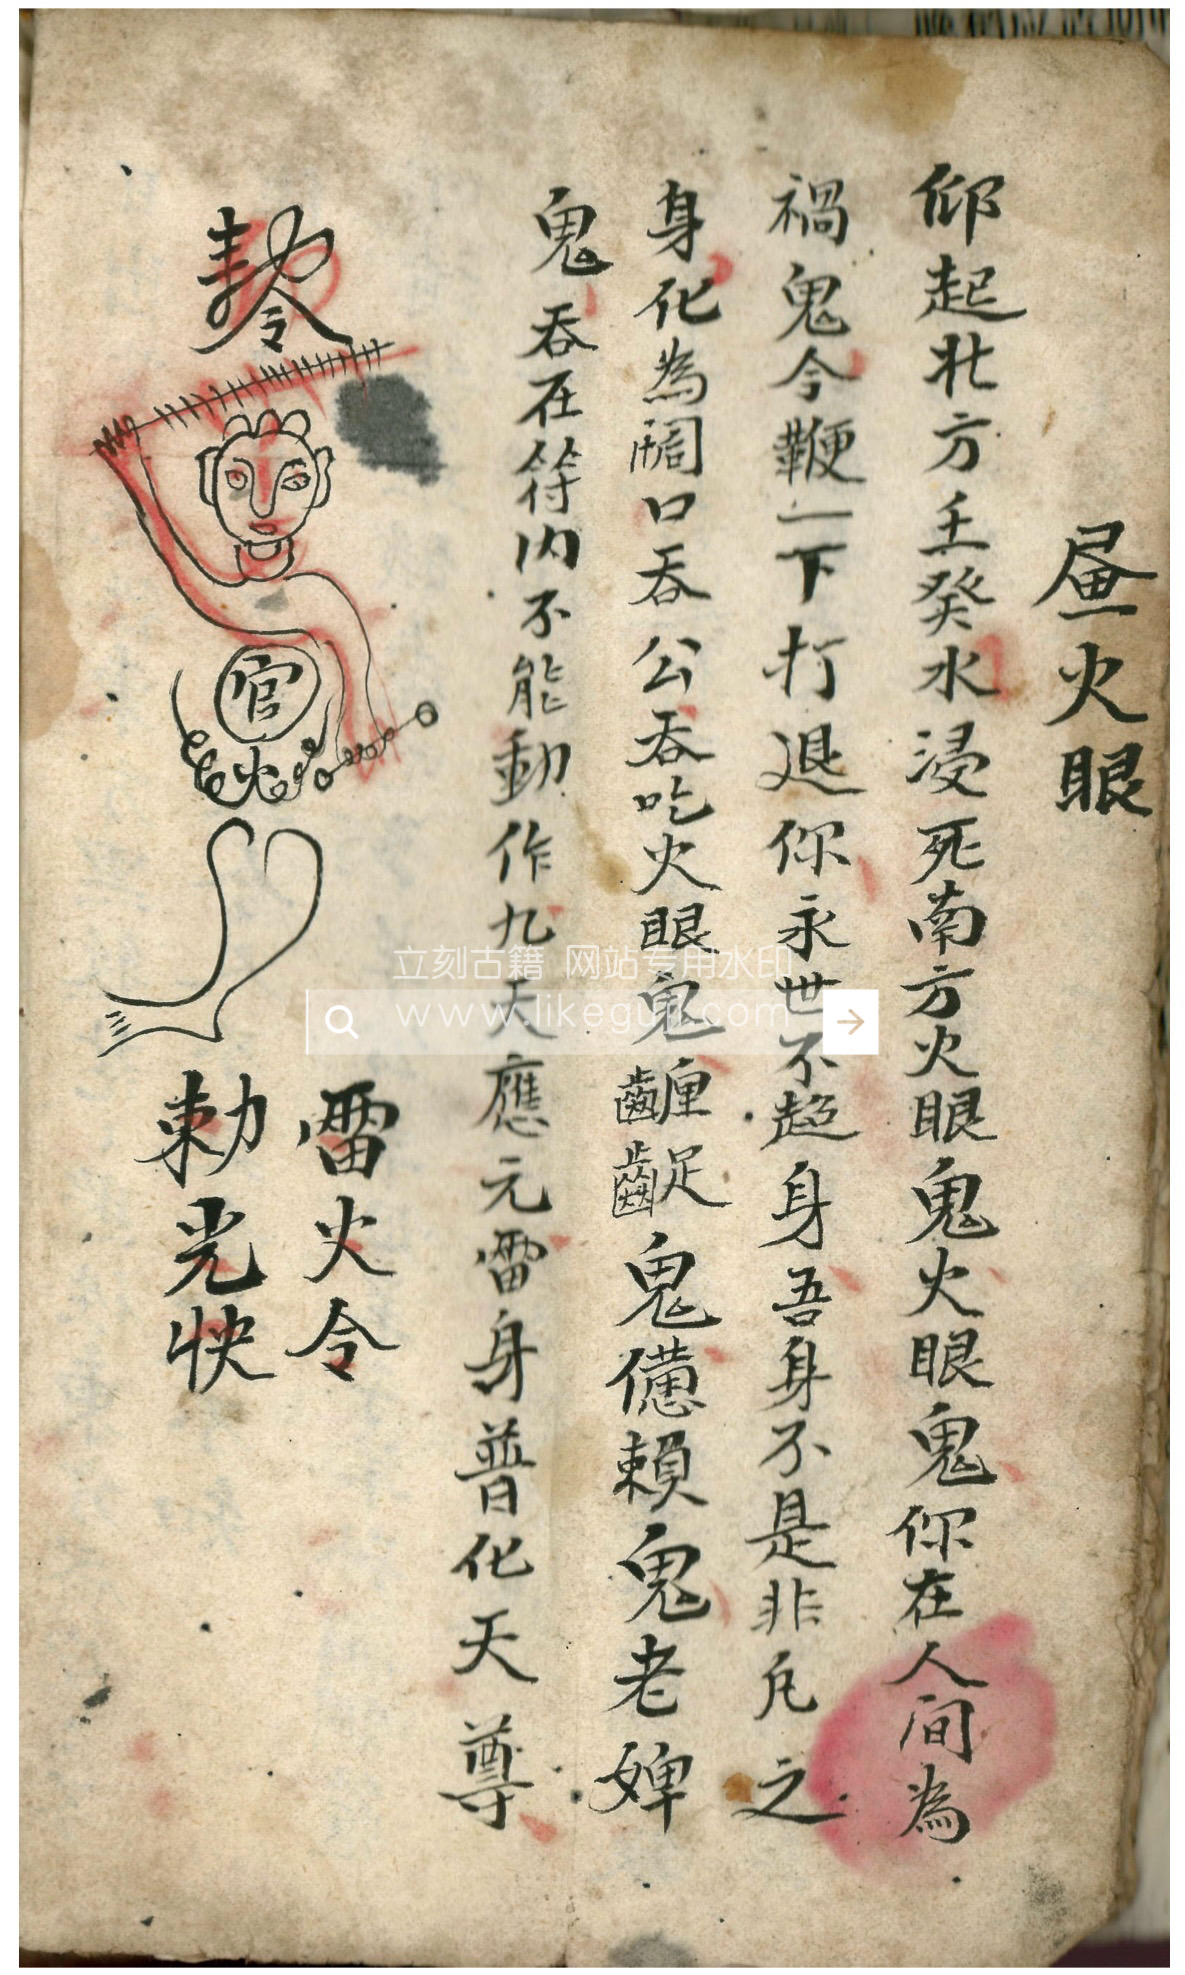 昼火眼
仰起北方壬癸水浸死南方火眼鬼火眼鬼你在人间為
禍鬼今鞭一下打退你永世不超身吾身不是非凡之
身化為口吞公吞吃火眼鬼鬼賴鬼老婢
鬼吞在符内不能動作九天應元雷身普化天尊
雷火令
勅光快
官
火
立刻古籍 网站专用水印
www.likeguji.com